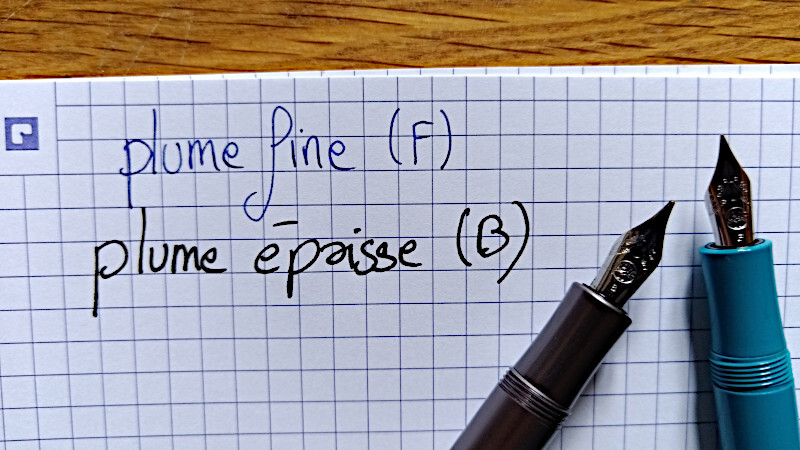 plume fine (F)
plume épaisse (B)